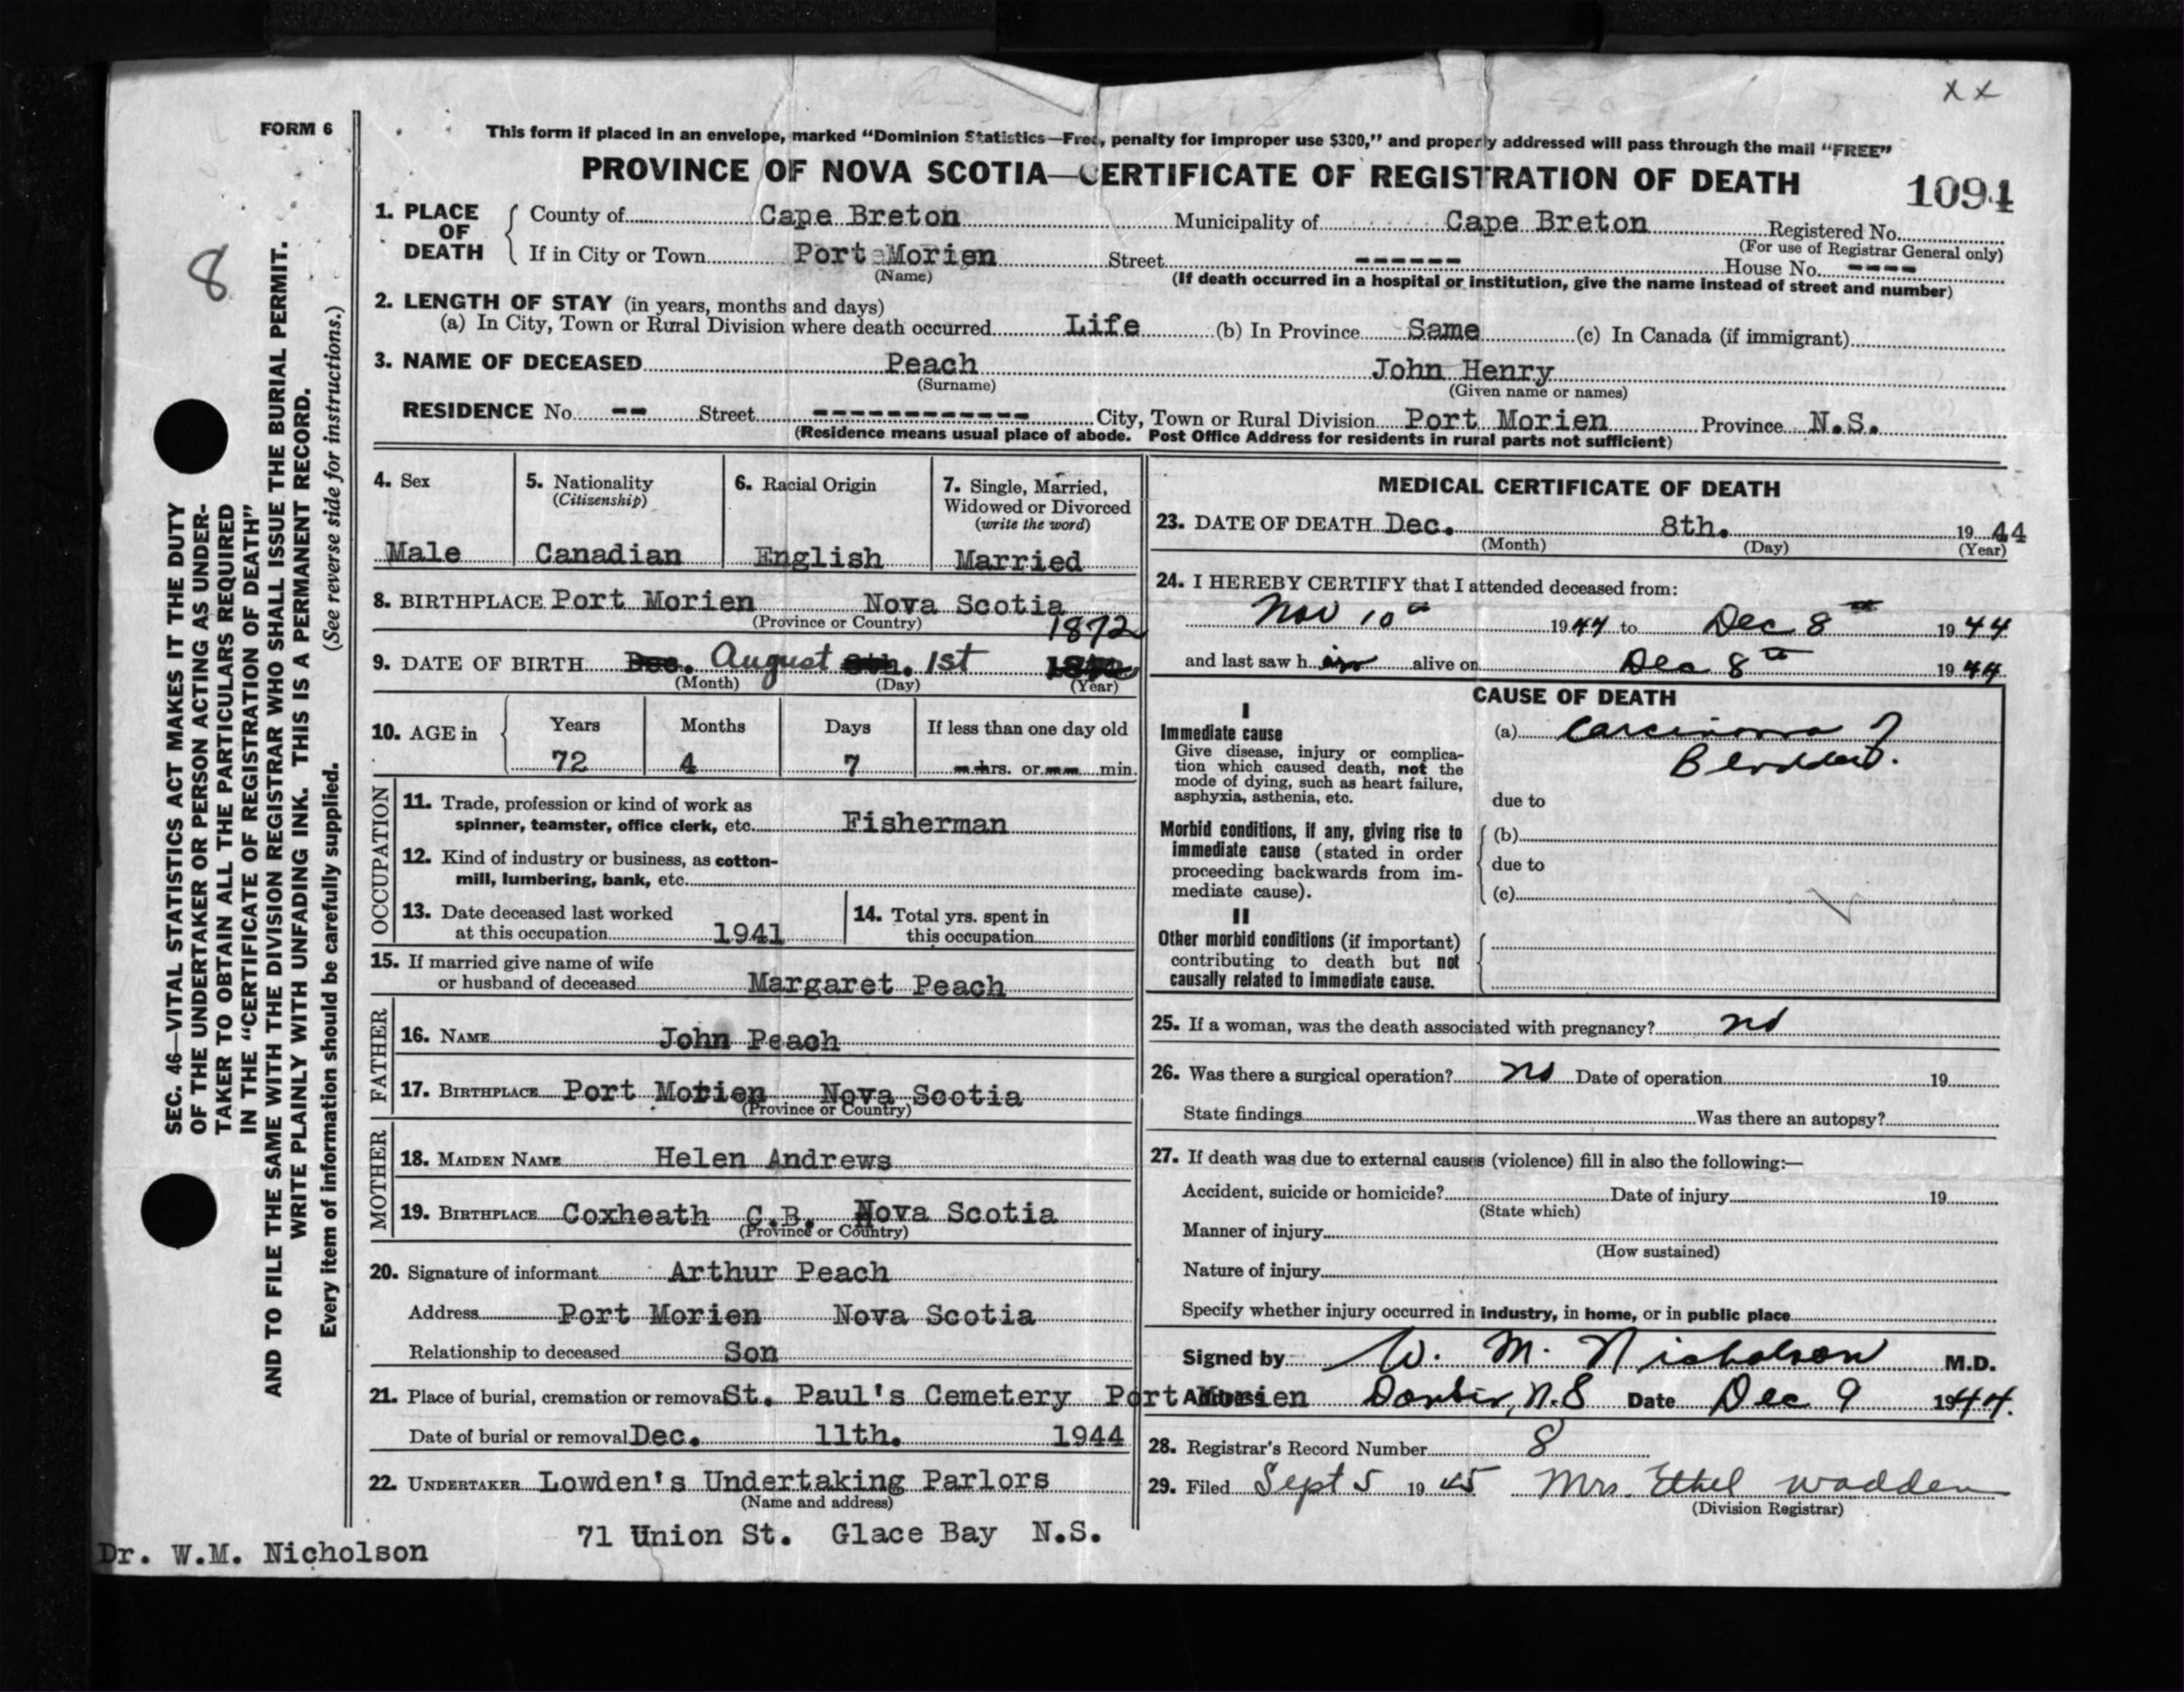 x x
FORM 6
This form if placed in an envelope, marked "Dominion Statistics—Free, penalty for improper use $300," and properly addressed will pass through the mail "FREE"
PROVINCE OF NOVA SCOTIA—CERTIFICATE OF REGISTRATION OF DEATH
1094
8
SEC. 46—VITAL STATISTICS ACT MAKES IT THE DUTY
OF THE UNDERTAKER OR PERSON ACTING AS UNDER-
TAKER TO OBTAIN ALL THE PARTICULARS REQUIRED
IN THE "CERTIFICATE OF REGISTRATION OF DEATH"
AND TO FILE THE SAME WITH THE DIVISION REGISTRAR WHO SHALL ISSUE THE BURIAL PERMIT.
WRITE PLAINLY WITH UNFADING INK. THIS IS A PERMANENT RECORD.
Every item of information should be carefully supplied. (See reverse side for instructions.)
1. PLACE OF DEATH
County of Cape Breton Municipality of Cape Breton Registered No.
(For use of Registrar General only)
If in City or Town Port Morien Street ------ House No. ----
(Name) (If death occurred in a hospital or institution, give the name instead of street and number)
2. LENGTH OF STAY (in years, months and days)
(a) In City, Town or Rural Division where death occurred Life (b) In Province Same (c) In Canada (if immigrant)
3. NAME OF DECEASED Peach John Henry
(Surname) (Given name or names)
RESIDENCE No. -- Street ------------ City, Town or Rural Division Port Morien Province N.S.
(Residence means usual place of abode. Post Office Address for residents in rural parts not sufficient)
4. Sex
Male
5. Nationality
(Citizenship)
Canadian
6. Racial Origin
English
7. Single, Married,
Widowed or Divorced
(write the word)
Married
8. BIRTHPLACE Port Morien Nova Scotia
(Province or Country)
1872
9. DATE OF BIRTH Dec. August 8th. 1st
(Month) (Day) (Year)
10. AGE in Years Months Days If less than one day old
72 4 7 -- hrs. or -- min.
OCCUPATION
11. Trade, profession or kind of work as
spinner, teamster, office clerk, etc. Fisherman
12. Kind of industry or business, as cotton-
mill, lumbering, bank, etc.
13. Date deceased last worked
at this occupation 1941
14. Total yrs. spent in
this occupation
15. If married give name of wife
or husband of deceased Margaret Peach
FATHER
16. NAME John Peach
17. BIRTHPLACE Port Morien Nova Scotia
(Province or Country)
MOTHER
18. MAIDEN NAME Helen Andrews
19. BIRTHPLACE Coxheath C.B. Nova Scotia
(Province or Country)
20. Signature of informant Arthur Peach
Address Port Morien Nova Scotia
Relationship to deceased Son
21. Place of burial, cremation or removal St. Paul's Cemetery Port Morien
Date of burial or removal Dec. 11th. 1944
22. UNDERTAKER Lowden's Undertaking Parlors
(Name and address)
71 Union St. Glace Bay N.S.
Dr. W.M. Nicholson
MEDICAL CERTIFICATE OF DEATH
23. DATE OF DEATH Dec. 8th. 1944
(Month) (Day) (Year)
24. I HEREBY CERTIFY that I attended deceased from:
Nov 10th 1944 to Dec 8th 1944
and last saw him alive on Dec 8th 1944
CAUSE OF DEATH
I
Immediate cause
Give disease, injury or complica-
tion which caused death, not the
mode of dying, such as heart failure,
asphyxia, asthenia, etc.
(a) Carcinoma ?
Bladder.
due to
Morbid conditions, if any, giving rise to
immediate cause (stated in order
proceeding backwards from im-
mediate cause).
(b)
due to
(c)
II
Other morbid conditions (if important)
contributing to death but not
causally related to immediate cause.
25. If a woman, was the death associated with pregnancy? no
26. Was there a surgical operation? no Date of operation 19
State findings Was there an autopsy?
27. If death was due to external causes (violence) fill in also the following:—
Accident, suicide or homicide? Date of injury 19
(State which)
Manner of injury
(How sustained)
Nature of injury
Specify whether injury occurred in industry, in home, or in public place
Signed by W. M. Nicholson M.D.
Address N.S Date Dec 9 1944.
28. Registrar's Record Number 8
29. Filed Sept 5 1945 Mrs. Ethel Wadden
(Division Registrar)